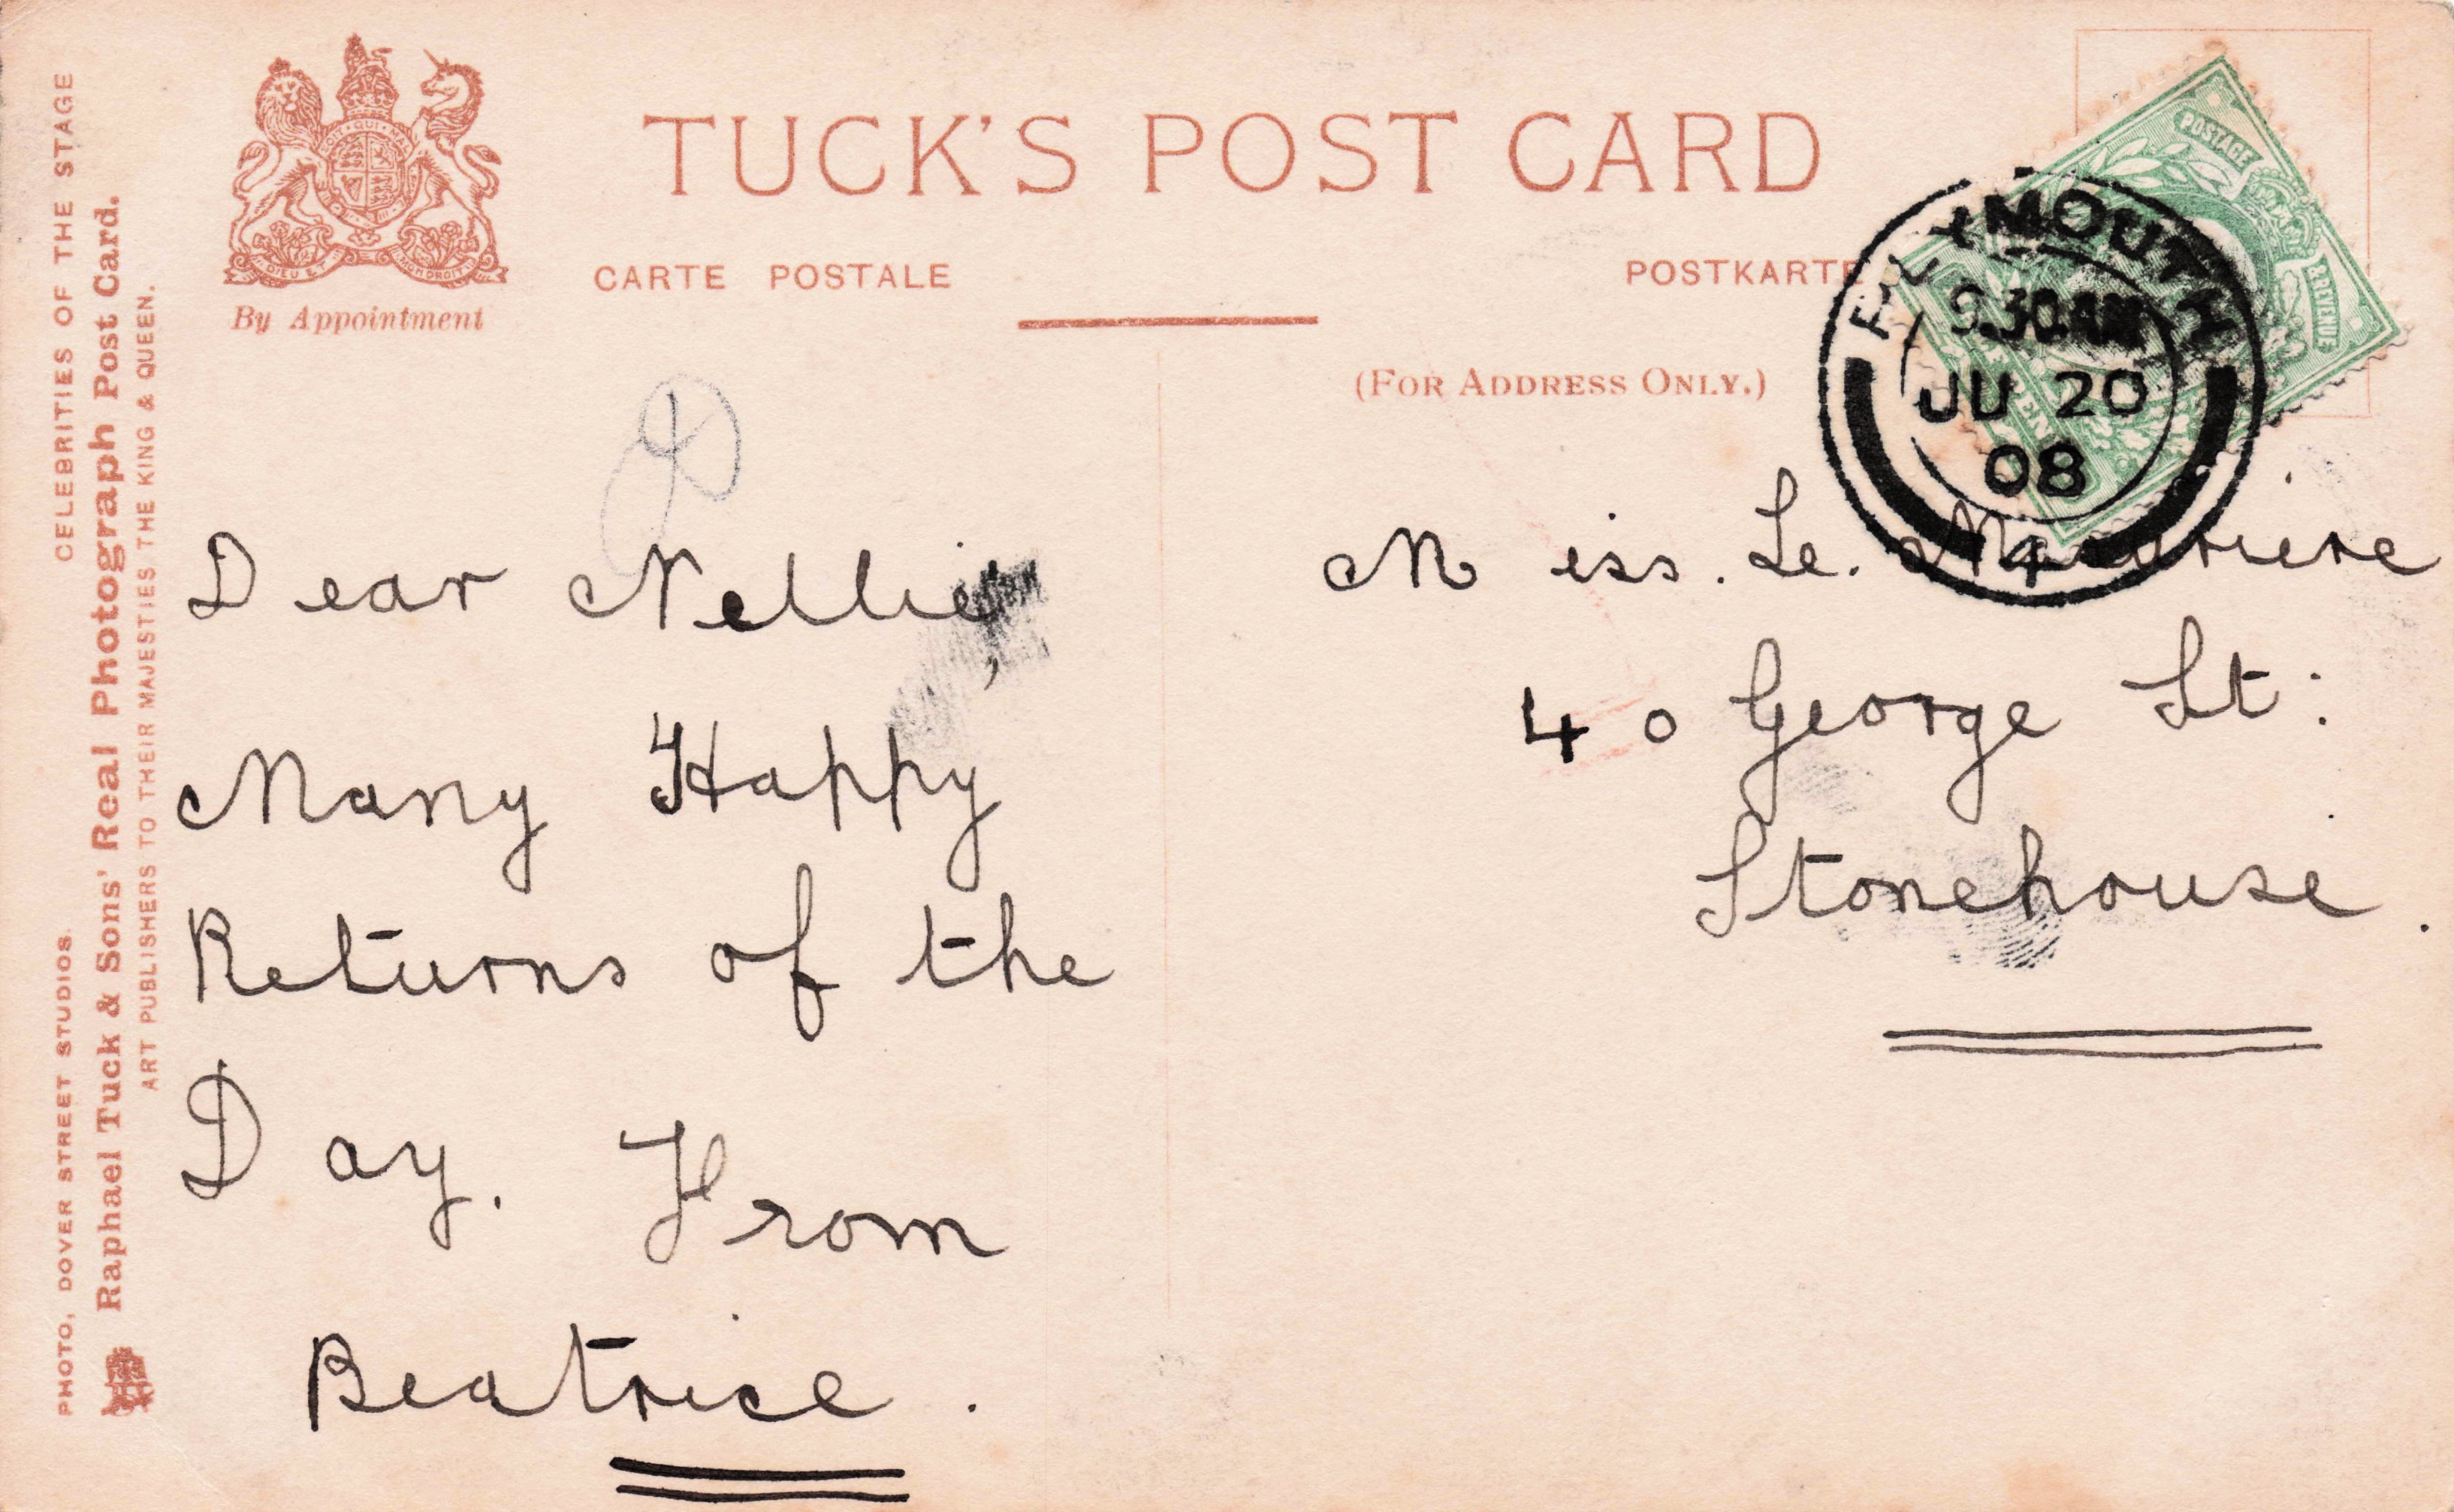 CELEBRITIES OF THE STAGE
PHOTO, DOVER STREET STUDIOS.
Raphael Tuck & Sons' Real Photograph Post Card.
ART PUBLISHERS TO THEIR MAJESTIES THE KING & QUEEN.
DIEU ET MON DROIT
By Appointment
TUCK'S POST CARD
CARTE POSTALE
POSTKARTE
(FOR ADDRESS ONLY.)
POSTAGE
& REVENUE
PLYMOUTH
9.30 AM
JU 20
08
4
Dear Nellie,
Many Happy
Returns of the
Day. From
Beatrice.
Miss. Le.
40 George St:
Stonehouse.